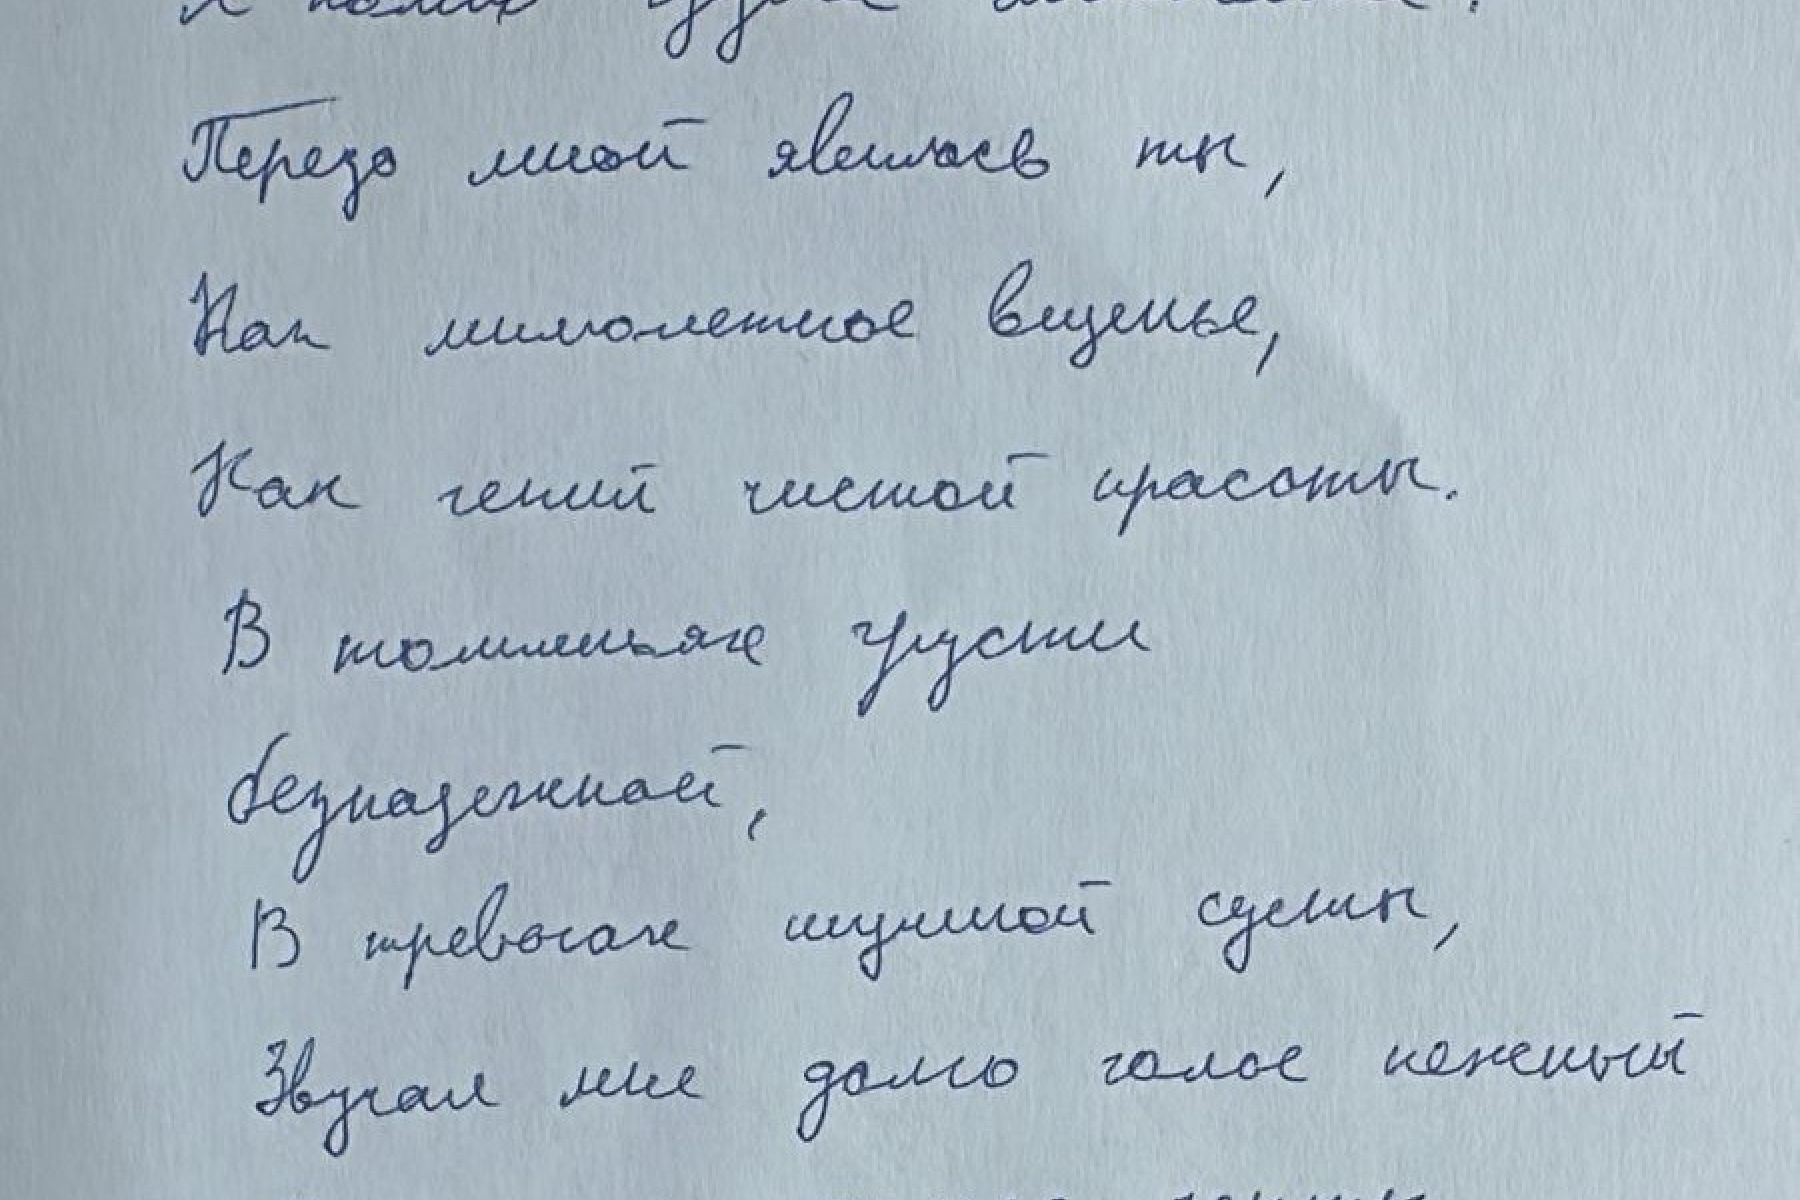 Передо мной явилась ты,
Как мимолетное виденье,
Как гений чистой красоты.
В томленьях грусти
безнадежной,
В тревогах шумной суеты,
Звучал мне долго голос нежный